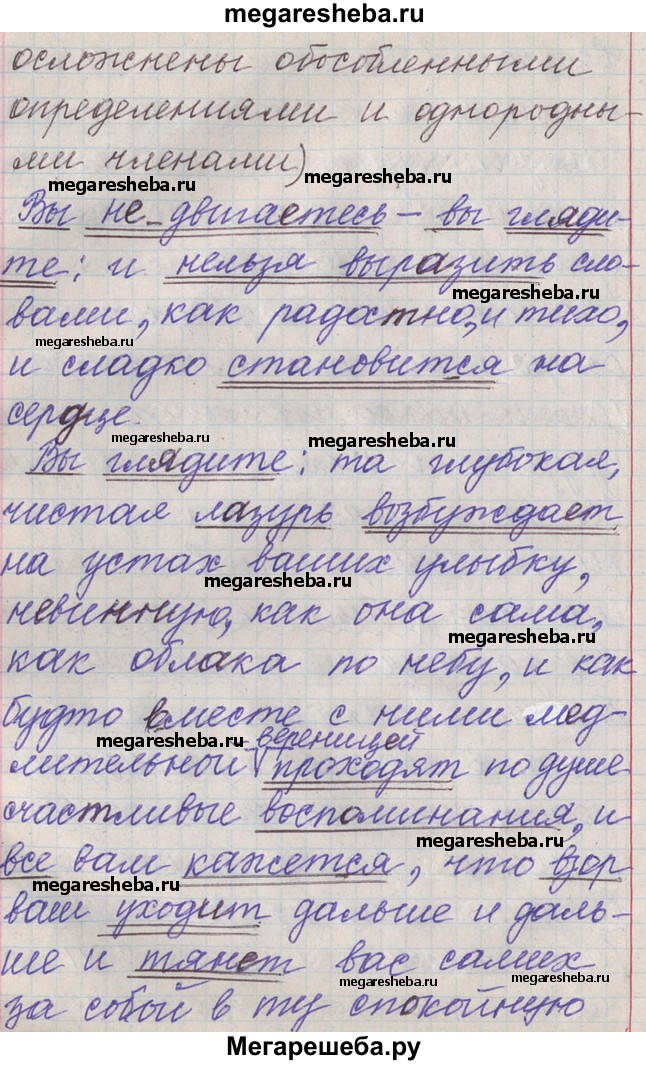 megaresheba.ru
осложнены обособленными
определениями и однородны-
ми членами)
megaresheba.ru
megaresheba.ru
Вы не двигаетесь – вы гляди-
те: и нельзя выразить сло-
megaresheba.ru
вами, как радостно, и тихо,
megaresheba.ru
и сладко становится на
сердце.
megaresheba.ru
megaresheba.ru
Вы глядите: та глубокая,
чистая лазурь возбуждает
на устах ваших улыбку,
megaresheba.ru
невинную, как она сама,
megaresheba.ru
как облака по небу, и как
будто вместе с ними мед-
megaresheba.ru
вереницей
лительной проходят по душе
счастливые воспоминания, и
megaresheba.ru
все вам кажется, что взор
megaresheba.ru
ваш уходит дальше и даль-
ше и тянет вас самих
megaresheba.ru
megaresheba.ru
за собой в ту спокойную
Мегарешеба.ру